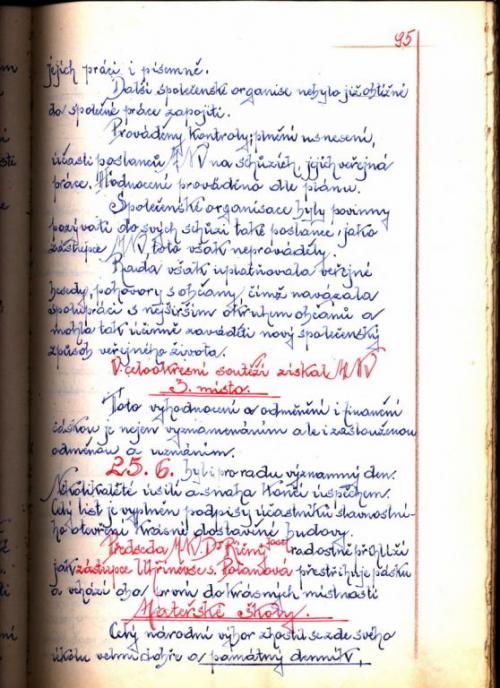 95
jejich práci i písemně.
Další společenské organise nebylo již obtížné
do společné práce zapojiti.
Prováděny kontroly: plnění usnesení,
účasti poslanců MNV na schůzích, jejich veřejná
práce. Hodnocení prováděno dle plánu.
Společenské organisace byly povinny
pozývati do svých schůzí také poslance, jako
zástupce MNV, toto však neprováděly.
Rada však uplatňovala veřejné
besedy, pohovory s občany, čímž navázala
spolupráci s nejširším okruhem občanů a
mohla tak účinně zaváděti nový společenský
způsob veřejného života.
V celookresní soutěži získal MNV
3. místo.
Toto vyhodnocení a odměnění i finanční
částkou je nejen vyznamenáním ale i zaslouženou
odměnou a uznáním.
25.6. byl pro radu významný den.
Několikaleté úsilí a snaha končí úspěchem.
Celý list je vyplněn podpisy účastníků slavnostní-
ho otevření krásné dostavěné budovy.
Předseda MNV. radostně přihlíží
jak zástupce Uhříněvse s. přestřihuje pásku
a vchází do krásných místností
Mateřské školy.
Celý národní výbor zhostil se zde svého
úkolu velmi dobře a památný denník,